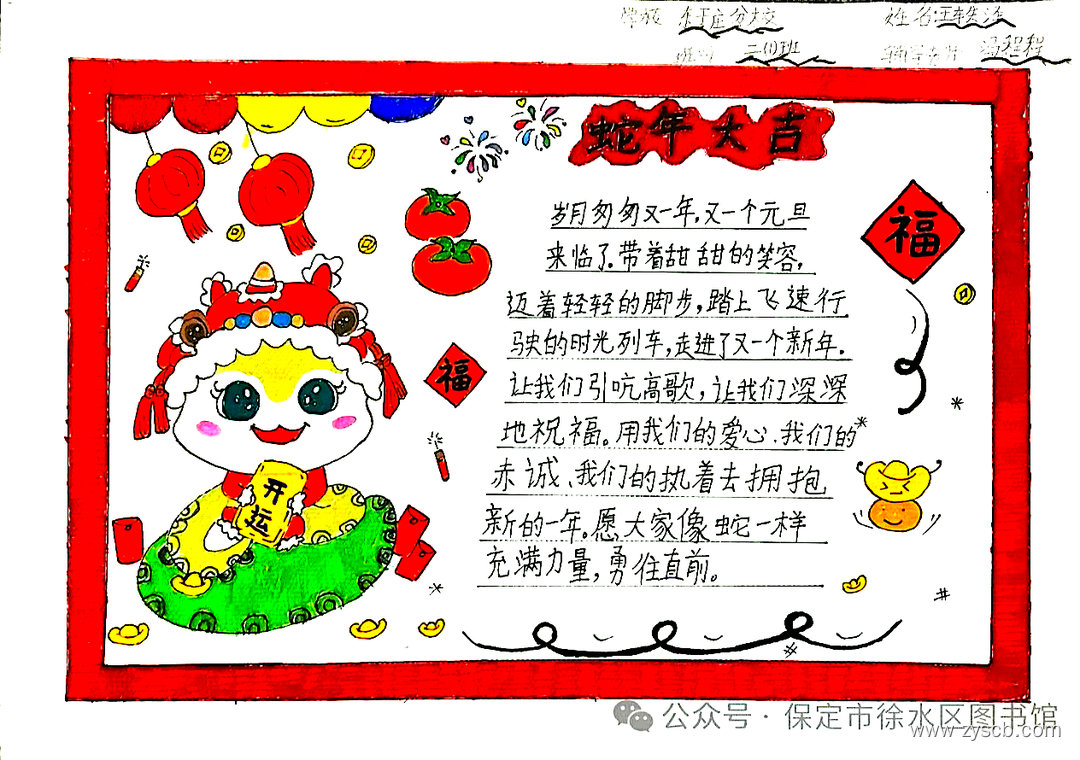 学校
分校
姓名:
二(1)班
冯程程
蛇年大吉
岁月匆匆又一年,又一个元旦
来临了.带着甜甜的笑容,
迈着轻轻的脚步,踏上飞速行
驶的时光列车,走进了又一个新年.
让我们引吭高歌,让我们深深
地祝福。用我们的爱心、我们的
赤诚、我们的执着去拥抱
新的一年.愿大家像蛇一样
充满力量,勇往直前。
福
福
开运
公众号·保定市徐水区图书馆
www.zyscb.com